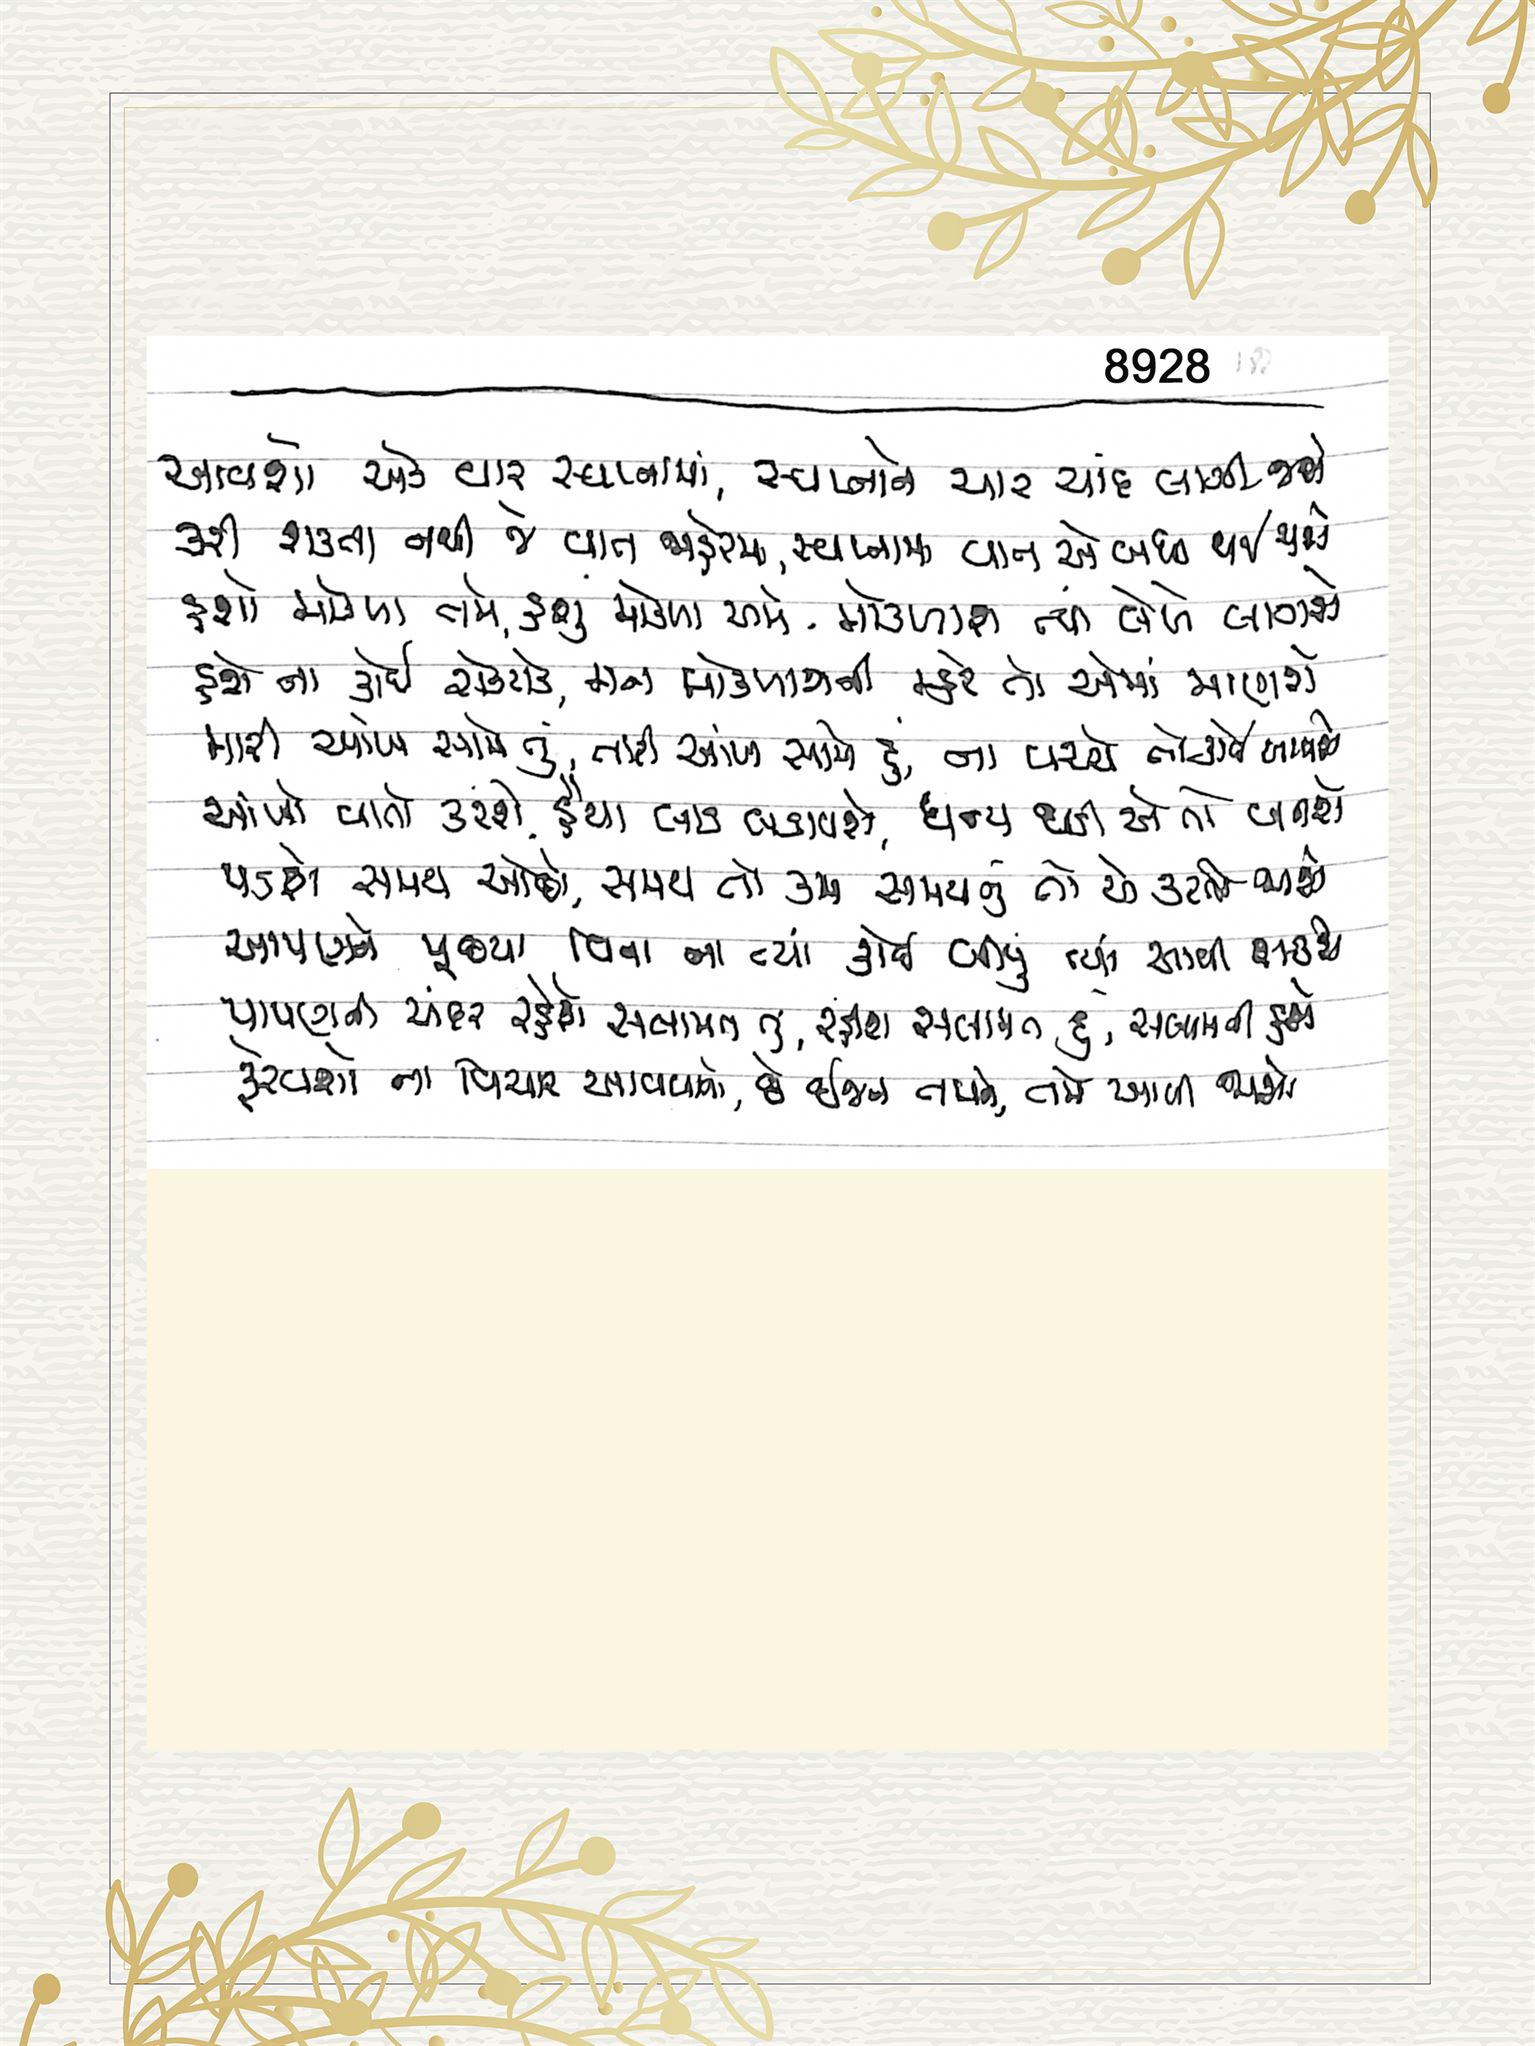 8928
આવશો એક વાર સ્વપ્નામાં, સ્વપ્નાને ચાર ચાંદ લાગી જાશે
કરી શકતા નથી જે વાત જાહેરમાં, સ્વપ્નામાં વાત એ બધી થઈ જાશે
હશો મોકળા તમે, હશું મોકળા અમે. મોકળાશ ત્યાં લેખે લાગશે
હશે ના કોઈ રોકટોક, મન મોકળાશની મ્હેર તો એમાં માણશે
મારી આંખ સામે તું, તારી આંખ સામે હું, ના વચ્ચે તો કોઈ આવશે
આંખો વાતો કરશે, હૈયા લાડ લડાવશે, ધન્ય ઘડી એ તો બનશે
પડશે સમય ઓછો, સમય તો કામ સમયનું તો એ કરતો જાશે
આપણને પૂછયા વિના ના ત્યાં કોઈ બીજું ત્યાં આવી શકશે
પાપણની અંદર રહેશે સલામત તું, રહીશ સલામત હું, સલામતી હશે
ફેરવશો ના વિચાર આવવાનો, છે ઇજન તમને, તમે આવી જાશો